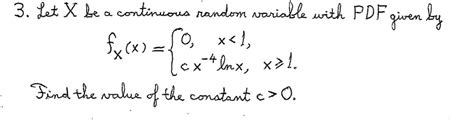 3. Let X be a continuous random variable with PDF given by
f_X(x) = { 0, x<1,
c x^{-4} ln x, x⩾1.
Find the value of the constant c>0.